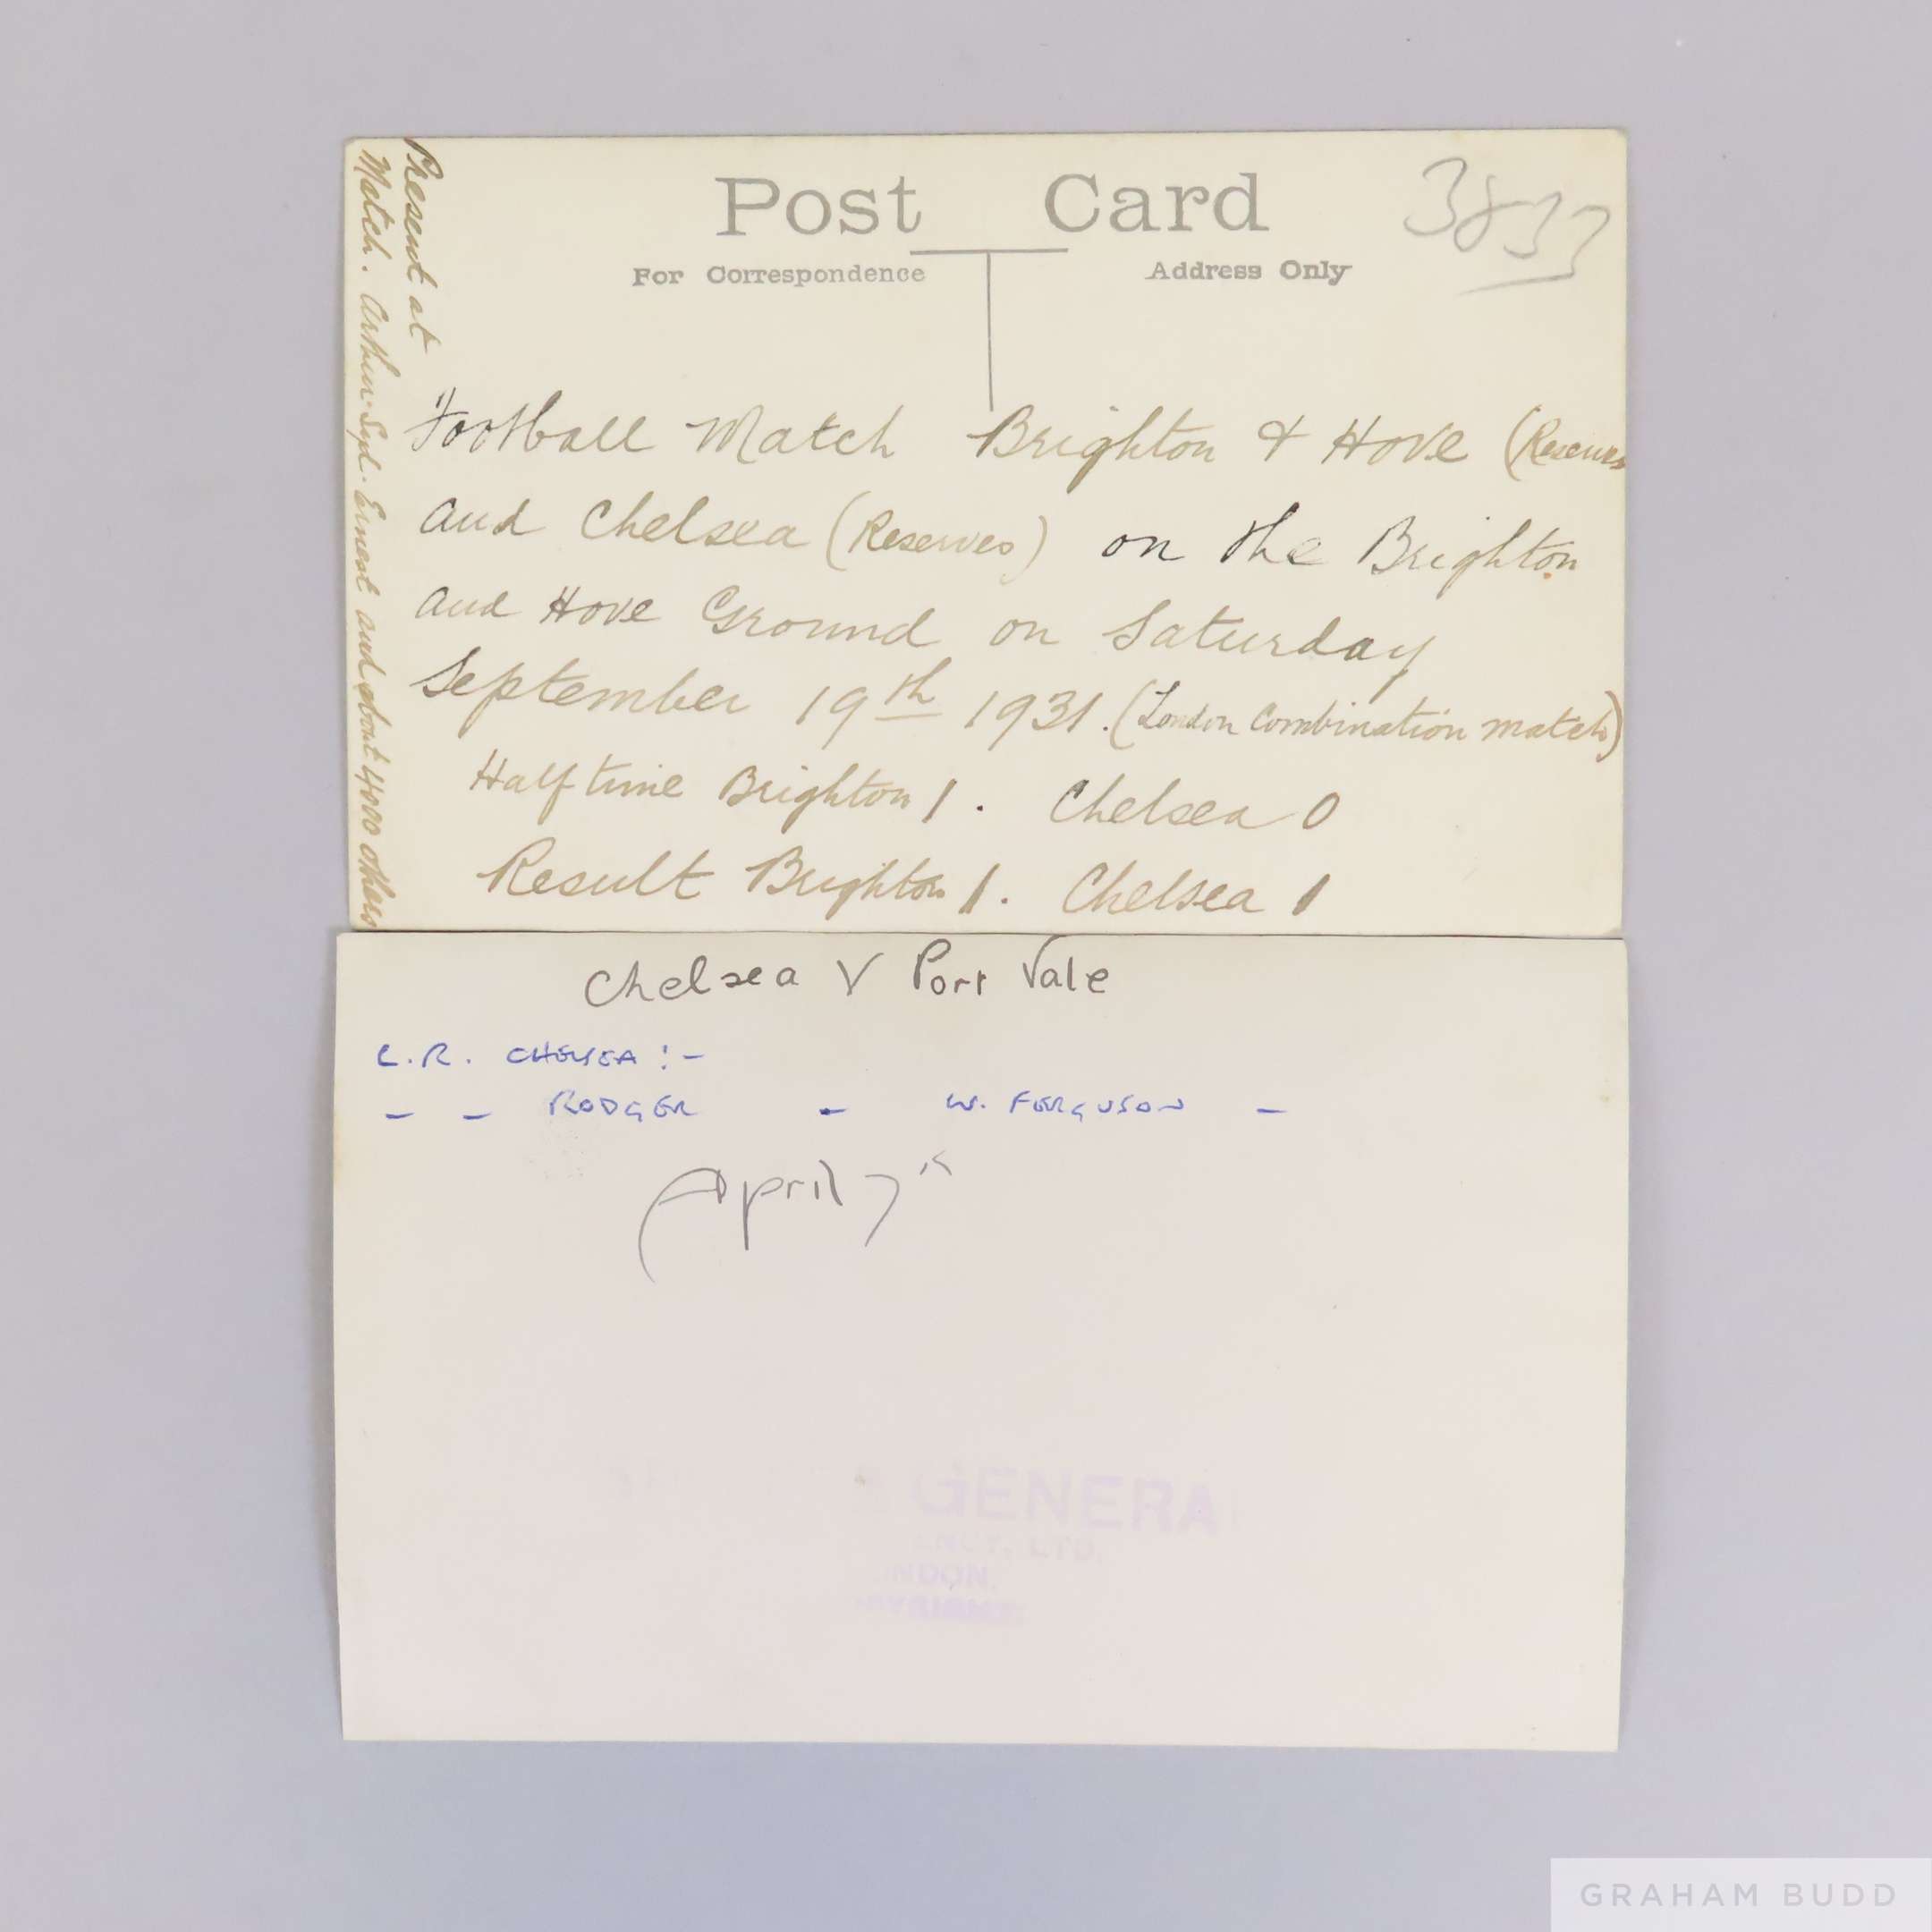 Post Card
For Correspondence
Address Only
Present at
Match. Arthur. Syd. Ernest and about 4000 others
Football Match Brighton & Hove (Reserves
and Chelsea (Reserves) on the Brighton
and Hove Ground on Saturday
September 19th 1931. (London Combination match)
Half time Brighton 1. Chelsea 0
Result Brighton 1. Chelsea 1
Chelsea V Port Vale
L.R. CHELSEA :-
- - RODGER - W. FERGUSON -
(April 7th
GENERA
LTD.
NDON.
GRAHAM BUDD